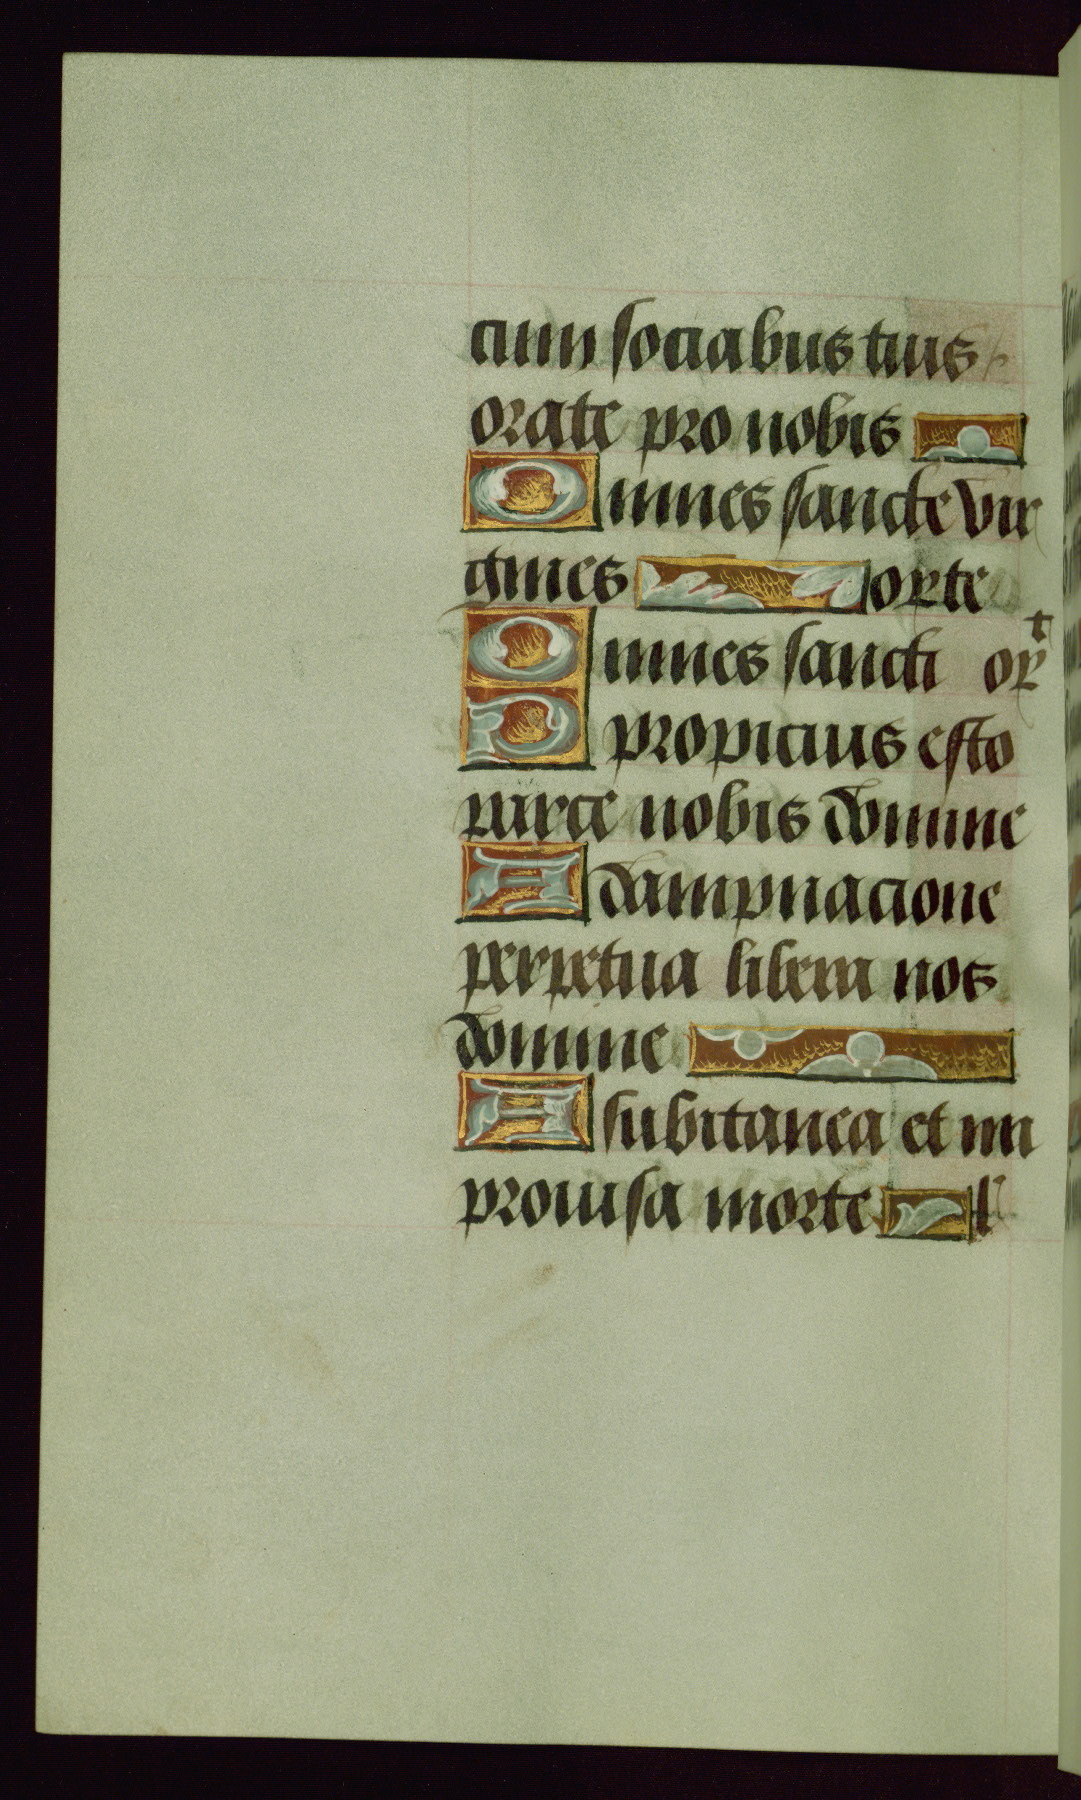 cum sociabus tuis
orate pro nobis
Omnes sancte vir
gines orate
Omnes sancti or t
Propropicius esto
parce nobis domine
A dampnacione
perpetua libera nos
domine
A subitanea et im
prouisa morte l